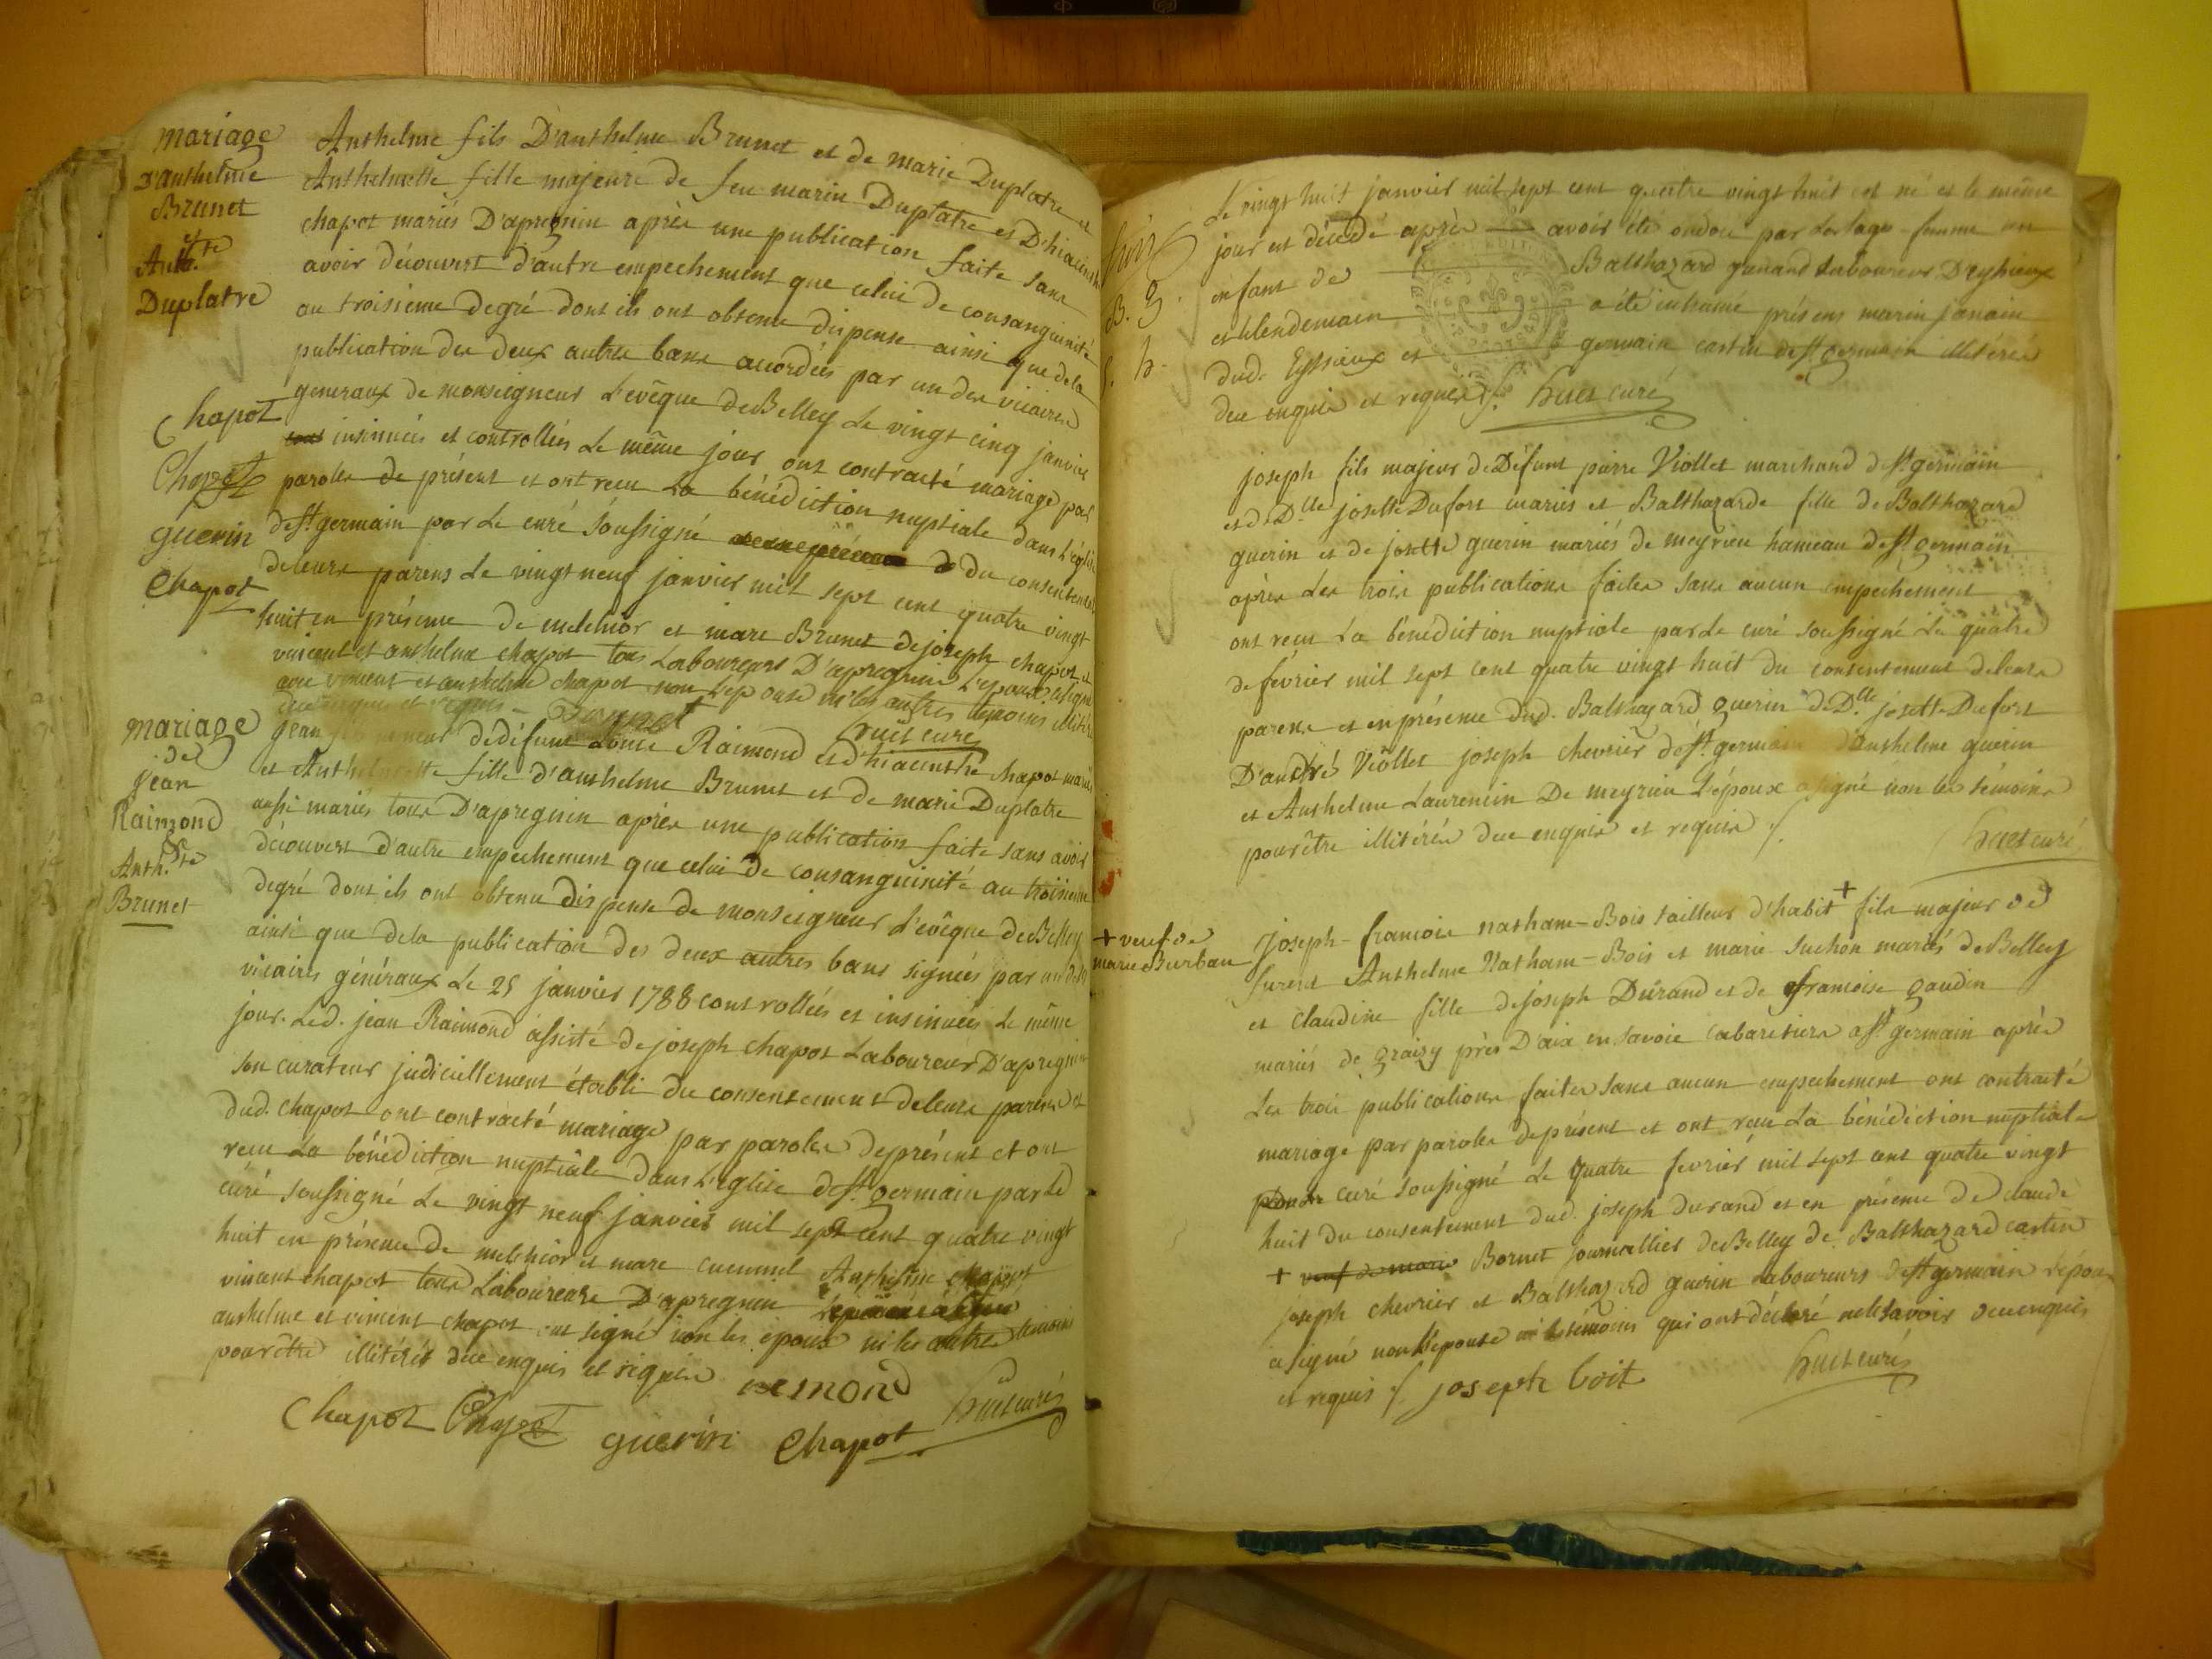 mariage
D'anthelme
Brunet
et
Anth.te
Duplatre
Anthelme fils D'anthelme Brunet et de marie Duplatre et
Anthelmette fille majeure de feu marin Duplatre et D'hiacinthe
chapot mariés D'apregnin après une publication faite sans
avoir découvert d'autre empechement que celui de consanguinité
au troisième degré dont ils ont obtenu dispense ainsi que dela
publication des deux autres bans accordées par un des vicaires
generaux de monseigneur L'evêque de Belley Le vingt cinq janvier
insinuées et controllées Le même jour ont contracté mariage par
paroles de présent et ont reçu La bénédiction nuptiale dans L'église
de st germain par Le curé soussigné du consentement
deleurs parens Le vingt neuf janvier mil sept cent quatre vingt
huit en présence de melchior et marc Brunet de joseph chapot et
vincent et anthelme chapot tous Laboureurs D'apregnin L'epoux a signé
avec vincent et anthelme chapot non L'epouse ni les autres temoins illitérés
enquis et requis Brunet
huët curé
Chapot
Chapot
guerin
Chapot
mariage
de
jean
Raimond
&
Anth.te
Brunet
jean fils mineur de défunt Louis Raimond et d'hiacinthe chapot mariés
et Anthelmette fille d'anthelme Brunet et de marie Duplatre
aussi mariés tous D'apregnin après une publication faite sans avoir
découvert d'autre empechement que celui de consanguinité au troisieme
degré dont ils ont obtenu dispense de monseigneur L'evêque de Belley
ainsi que dela publication des deux autres bans signées par un des
vicaires généraux Le 25 janvier 1788 controllées et insinuées Le même
jour. Led. jean Raimond assisté de joseph chapot Laboureur D'apregnin
son curateur judiciellement établi du consentement deleurs parens et
dud. chapot ont contracté mariage par paroles deprésent et ont
reçu La bénédiction nuptiale dans L'église de st. germain par Le
curé soussigné Le vingt neuf janvier mil sept cent quatre vingt
huit en présence de melchior et marc Anthelme chapot
vincent chapot tous Laboureurs D'apregnin
anthelme et vincent chapot ont signé non les époux ni les autres temoins
pour être illitérés de ce enquis et requis remond
Chapot Chapot guerin Chapot huet curé
Le vingt huit janvier mil sept cent quatre vingt huit est né et le même
jour est décédé après avoir été ondoié par La sage-femme un
enfant de Balthazard Laboureur D'eyssieux
et le lendemain a été inhumé présens marin janain
dud. Eyssieux et germain castin de st germain illitérés
de ce enquis et requis ./. huet curé
joseph fils majeur de Défunt pierre Viollet marchand de st. germain
et de D.lle josette Dufort mariés et Balthazarde fille de Balthazard
guerin et de josette guerin mariés de meyrieu hameau de st germain
après Les trois publications faites sans aucun empechement
ont reçu La bénédiction nuptiale par Le curé soussigné Le quatre
de février mil sept cent quatre vingt huit du consentement deleurs
parens et en présence dud. Balthazard guerin de D.lle josette Dufort
D'andré Viollet joseph chevrier de st. germain D'anthelme guerin
et Anthelme Laurencin De meyrieu L'époux a signé non les témoins
pour être illitérés de ce enquis et requis ./.
huet curé
+ veuf de
marie Burban
joseph-francois natham-Bois tailleur d'habit + fils majeur de
furent Anthelme Natham-Bois et marie Suchon mariés de Belley
et claudine fille de joseph Durand et de francoise gaudin
mariés de graizy près D'aix en savoie cabaretiers a st. germain après
Les trois publications faites sans aucun empechement ont contracté
mariage par paroles deprésent et ont reçu La bénédiction nuptiale
curé soussigné Le quatre fevrier mil sept cent quatre vingt
huit du consentement dud. joseph durand et en présence de claude
+ veuf de marie Bornet journallier de Belley de Balthazard castin
joseph chevrier et Balthazard guerin Laboureurs de st germain L'époux
a signé non L'épouse ni les témoins qui ont déclaré nele savoir de ce enquis
et requis ./. joseph boit huet curé